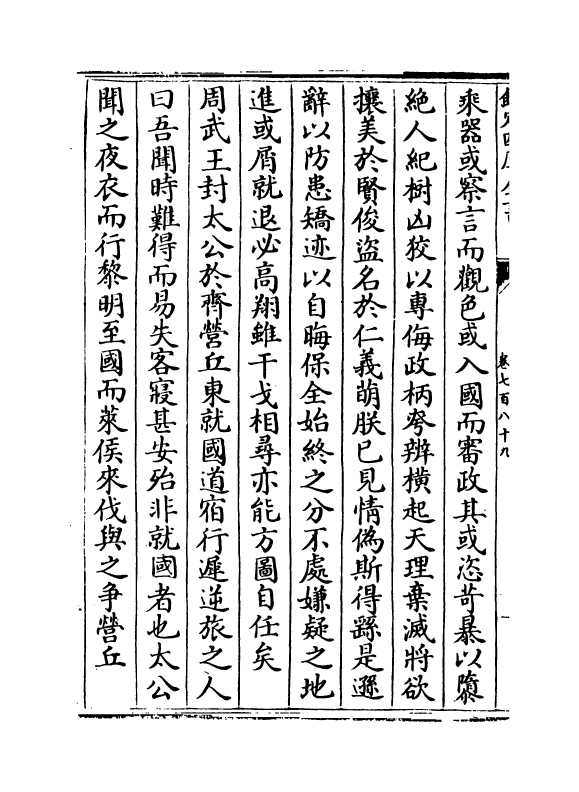 乘器或察言而觀色或入國而審政其或恣苛暴以隳
絶人紀樹凶狡以專侮政柄夸辨橫起天理棄滅將欲
攘美於賢俊盜名於仁義萌朕已見情僞斯得繇是遜
辭以防患矯迹以自晦保全始終之分不處嫌疑之地
進或屑就退必高翔雖干戈相尋亦能方圖自任矣
周武王封太公於齊營丘東就國道宿行遲逆旅之人
曰吾聞時難得而易失客寢甚安殆非就國者也太公
聞之夜衣而行黎明至國而萊侯來伐與之爭營丘
卷七百八十九